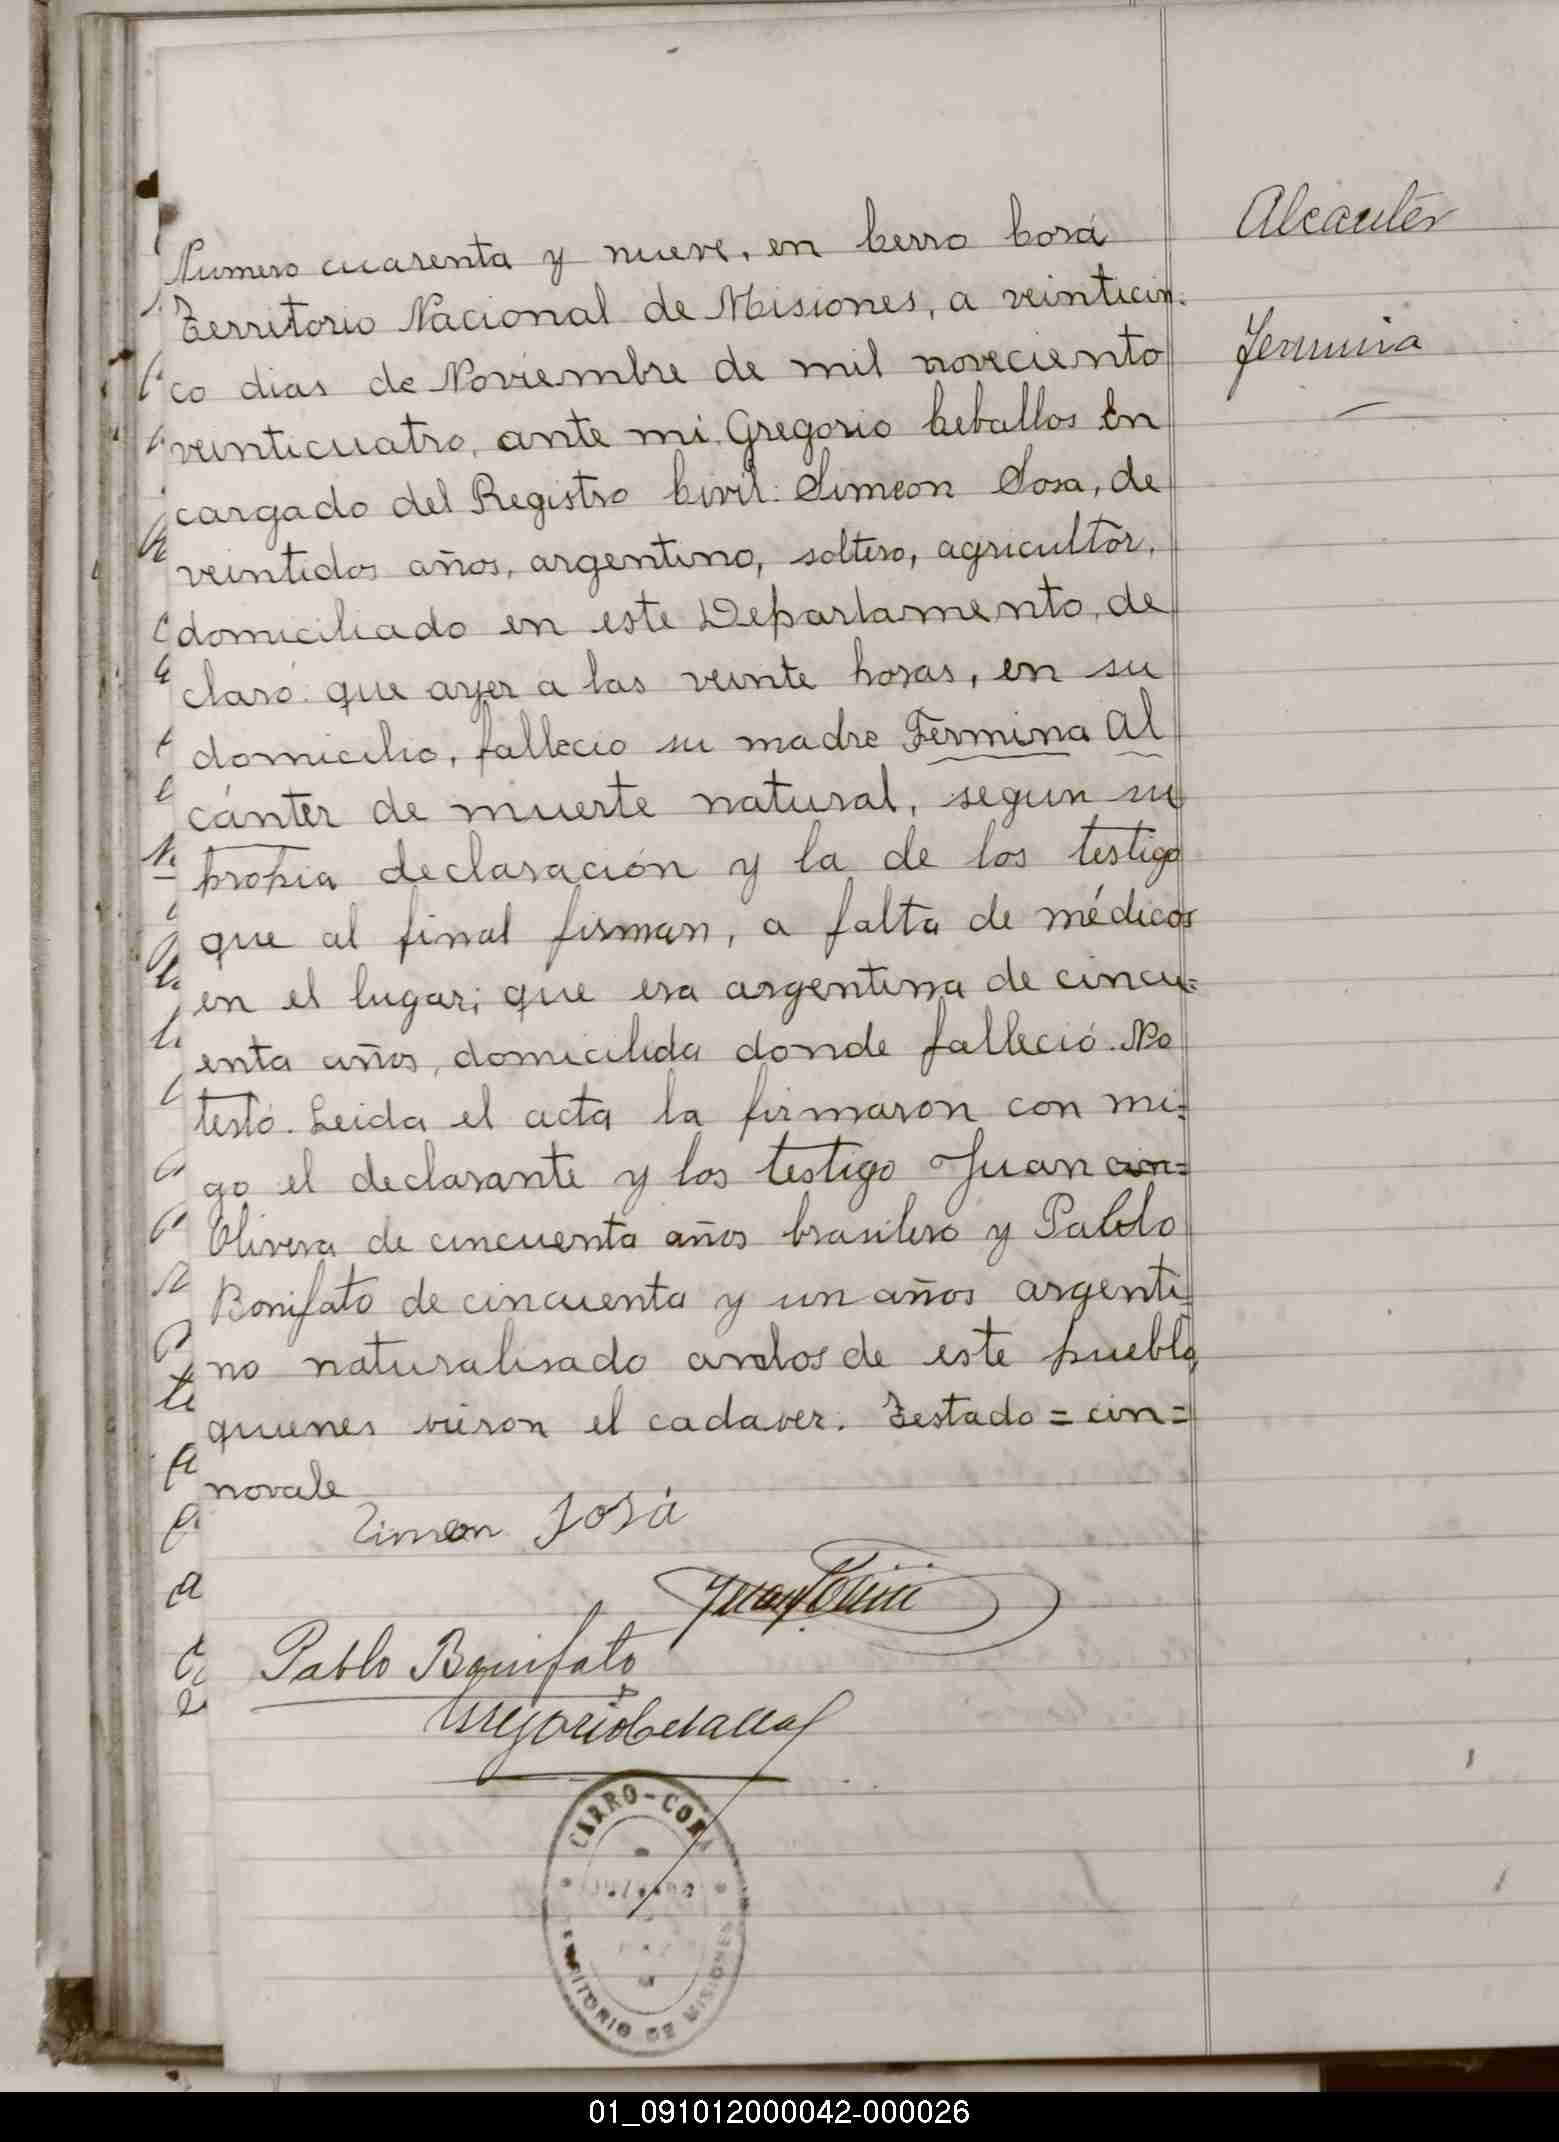 Alcantér
Fermina
Numero cuarenta y nueve, en Cerro Corá
Territorio Nacional de Misiones, a veinticin-
co dias de Noviembre de mil noveciento
veinticuatro, ante mi Gregorio Ceballos En
cargado del Registro Civil: Simeon Sosa, de
veintidos años, argentino, soltero, agricultor,
domiciliado en este Departamento, de
claró: que ayer a las veinte horas, en su
domicilio, fallecio su madre Fermina Al
cánter de muerte natural, segun su
propia declaración y la de los testigo
que al final firman, a falta de médicos
en el lugar; que era argentina de cincu=
enta años, domicilida donde falleció. No
testó. Leida el acta la firmaron con mi=
go el declarante y los testigo Juan cin=
Olivera de cincuenta años brasilero y Pablo
Bonifato de cincuenta y un años argenti=
no naturalisado ambos de este pueblo,
quienes vieron el cadaver. Testado = cin =
novale
Simeon Sosá
Juan
Pablo Bonifato
Gregorio Ceballos
CERRO-CORÁ
TERRITORIO DE MISIONES
01_091012000042-000026